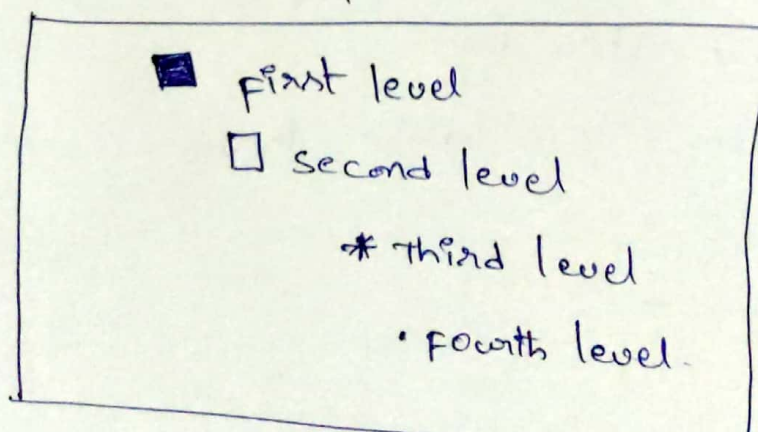 ■ First level
□ Second level
* Third level
· Fourth level.